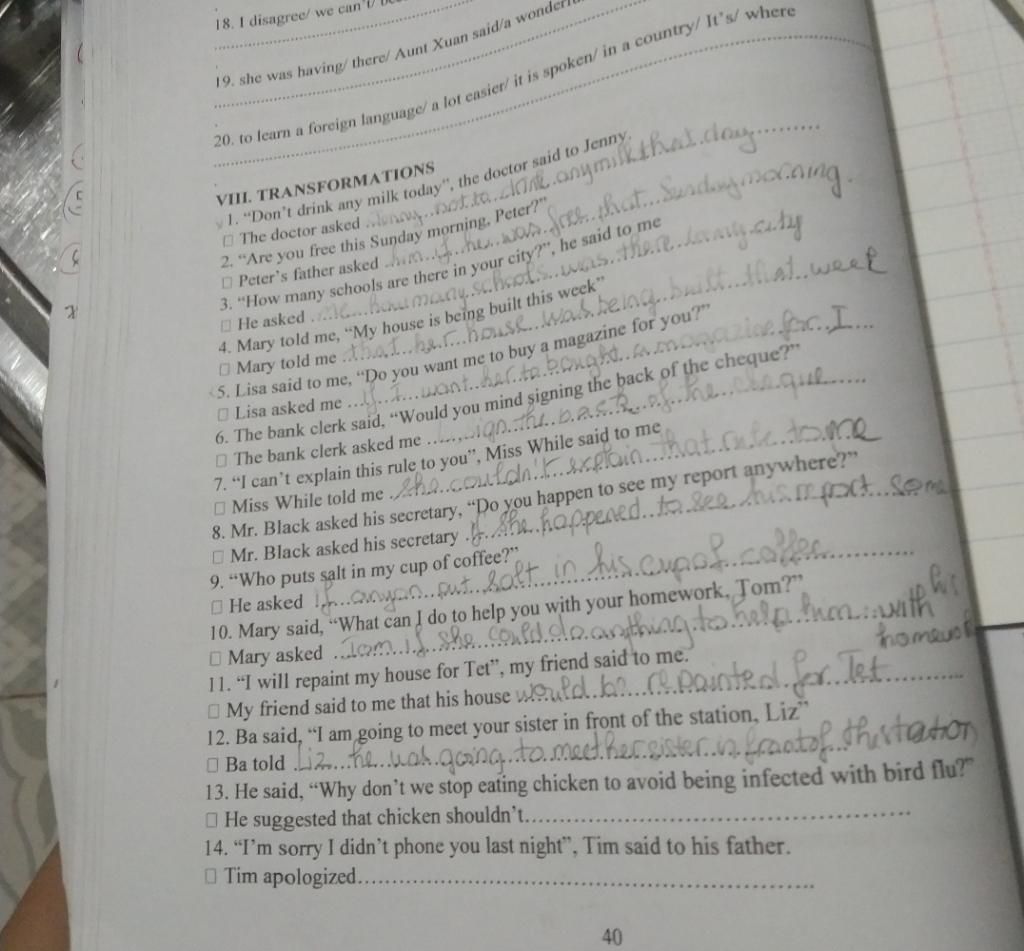 18. I disagree/ we can't/
19. she was having/ there/ Aunt Xuan said/a
20. to learn a foreign language/ a lot easier/ it is spoken/ in a country/ It's/ where
VIII. TRANSFORMATIONS
1. "Don't drink any milk today", the doctor said to Jenny.
□ The doctor asked Jenny not to drink any milk that day
2. "Are you free this Sunday morning, Peter?"
□ Peter's father asked him if he was free that Sunday morning.
3. "How many schools are there in your city?", he said to me
□ He asked me how many schools was there in my city
4. Mary told me, "My house is being built this week"
□ Mary told me that her house was being built that week
5. Lisa said to me, "Do you want me to buy a magazine for you?"
□ Lisa asked me if I want her to bought a magazine for I
6. The bank clerk said, "Would you mind signing the back of the cheque?"
□ The bank clerk asked me sign the back of the cheque
7. "I can't explain this rule to you", Miss While said to me
□ Miss While told me she couldn't explain that rule to me
8. Mr. Black asked his secretary, "Do you happen to see my report anywhere?"
□ Mr. Black asked his secretary if she happened to see his report some
9. "Who puts salt in my cup of coffee?"
□ He asked if anyon put salt in his cup of coffee
10. Mary said, "What can I do to help you with your homework, Tom?"
□ Mary asked Tom if she could do anything to help him with his
homework
11. "I will repaint my house for Tet", my friend said to me.
□ My friend said to me that his house would be repainted for Tet
12. Ba said, "I am going to meet your sister in front of the station, Liz"
□ Ba told Liz he was going to meet her sister in front of the station
13. He said, "Why don't we stop eating chicken to avoid being infected with bird flu?"
□ He suggested that chicken shouldn't
14. "I'm sorry I didn't phone you last night", Tim said to his father.
□ Tim apologized
40